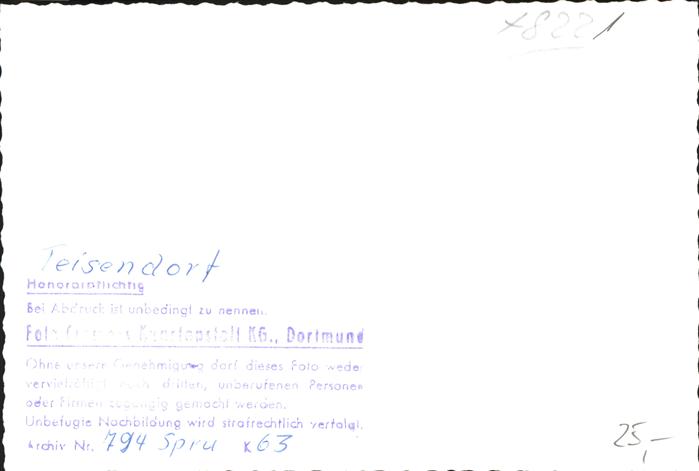 78221
Teisendorf
Honorarpflichtig
Bei Abdruck ist unbedingt zu nennen.
Foto Cramers Kunstanstalt KG., Dortmund
Ohne unsere Genehmigung darf dieses Foto weder
vervielfältigt noch dritten, unberufenen Personen
oder Firmen zugängig gemacht werden.
Unbefugte Nachbildung wird strafrechtlich verfolgt.
Archiv Nr. 794 Spru K 63
25,-